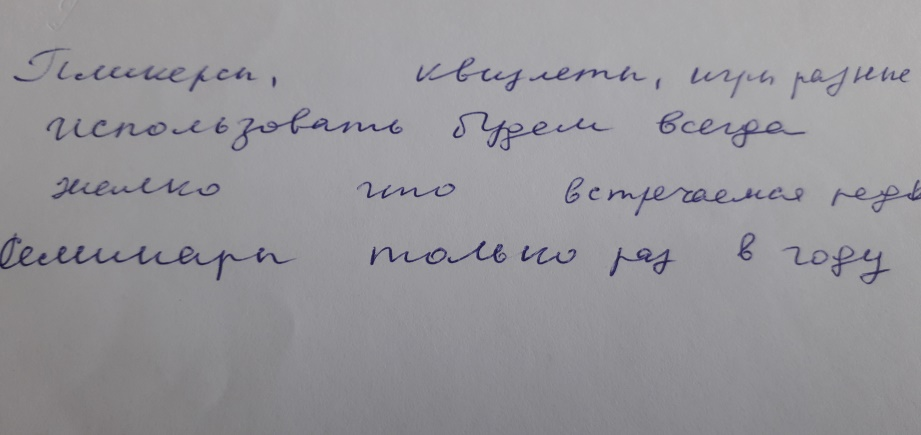 Пликерсы, квизлеты, игры разные
использовать будем всегда
жалко что встречаемся редк
Семинары только раз в году